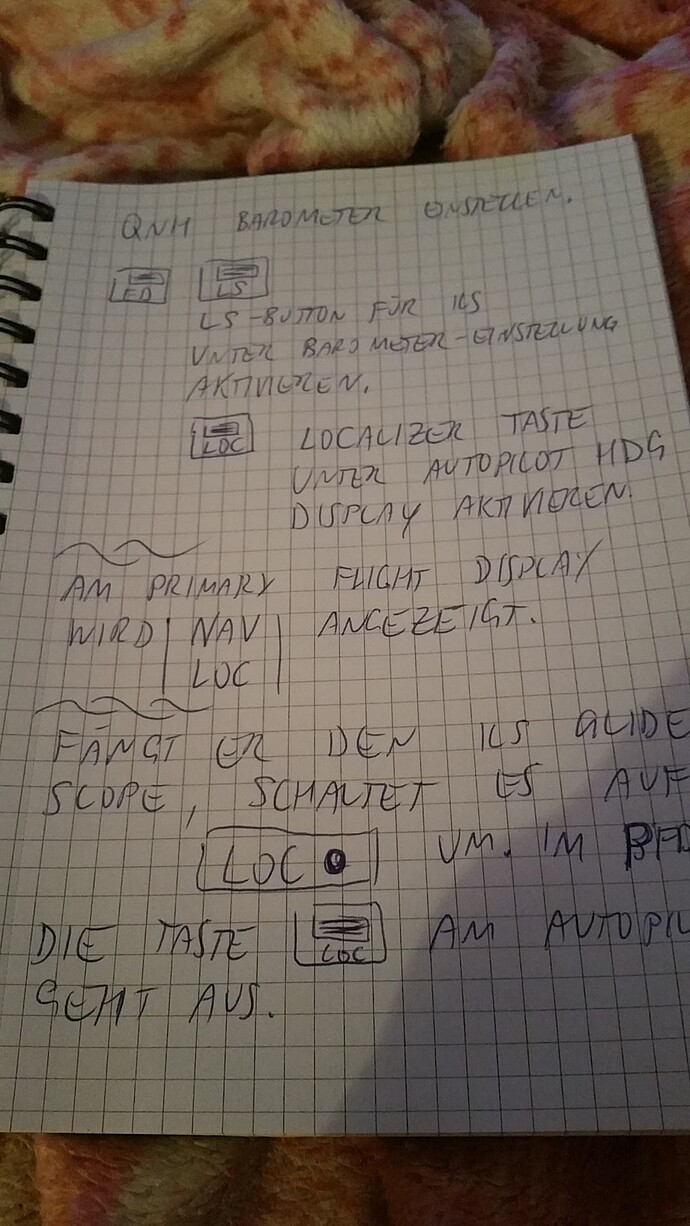 QNH BAROMETER EINSTELLEN.
FD LS
LS-BUTTON FÜR ILS
UNTER BAROMETER-EINSTELLUNG
AKTIVIEREN.
LOC LOCALIZER TASTE
UNTER AUTOPILOT HDG
DISPLAY AKTIVIEREN.
AM PRIMARY FLIGHT DISPLAY
WIRD | NAV | ANGEZEIGT.
LOC
FÄNGT ER DEN ILS GLIDE
SCOPE, SCHALTET ES AUF
LOC UM. IM PFD
DIE TASTE LOC AM AUTOPIL
GEHT AUS.